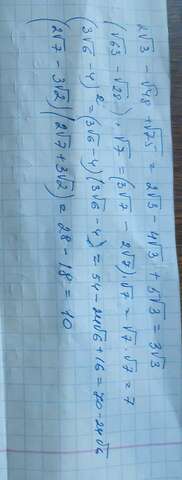 2√3 - √48 + √75 = 2√3 - 4√3 + 5√3 = 3√3
(√63 - √28) · √7 = (3√7 - 2√7) · √7 = √7 · √7 = 7
(3√6 - 4)² = (3√6 - 4)(3√6 - 4) = 54 - 24√6 + 16 = 70 - 24√6
(2√7 - 3√2)(2√7 + 3√2) = 28 - 18 = 10